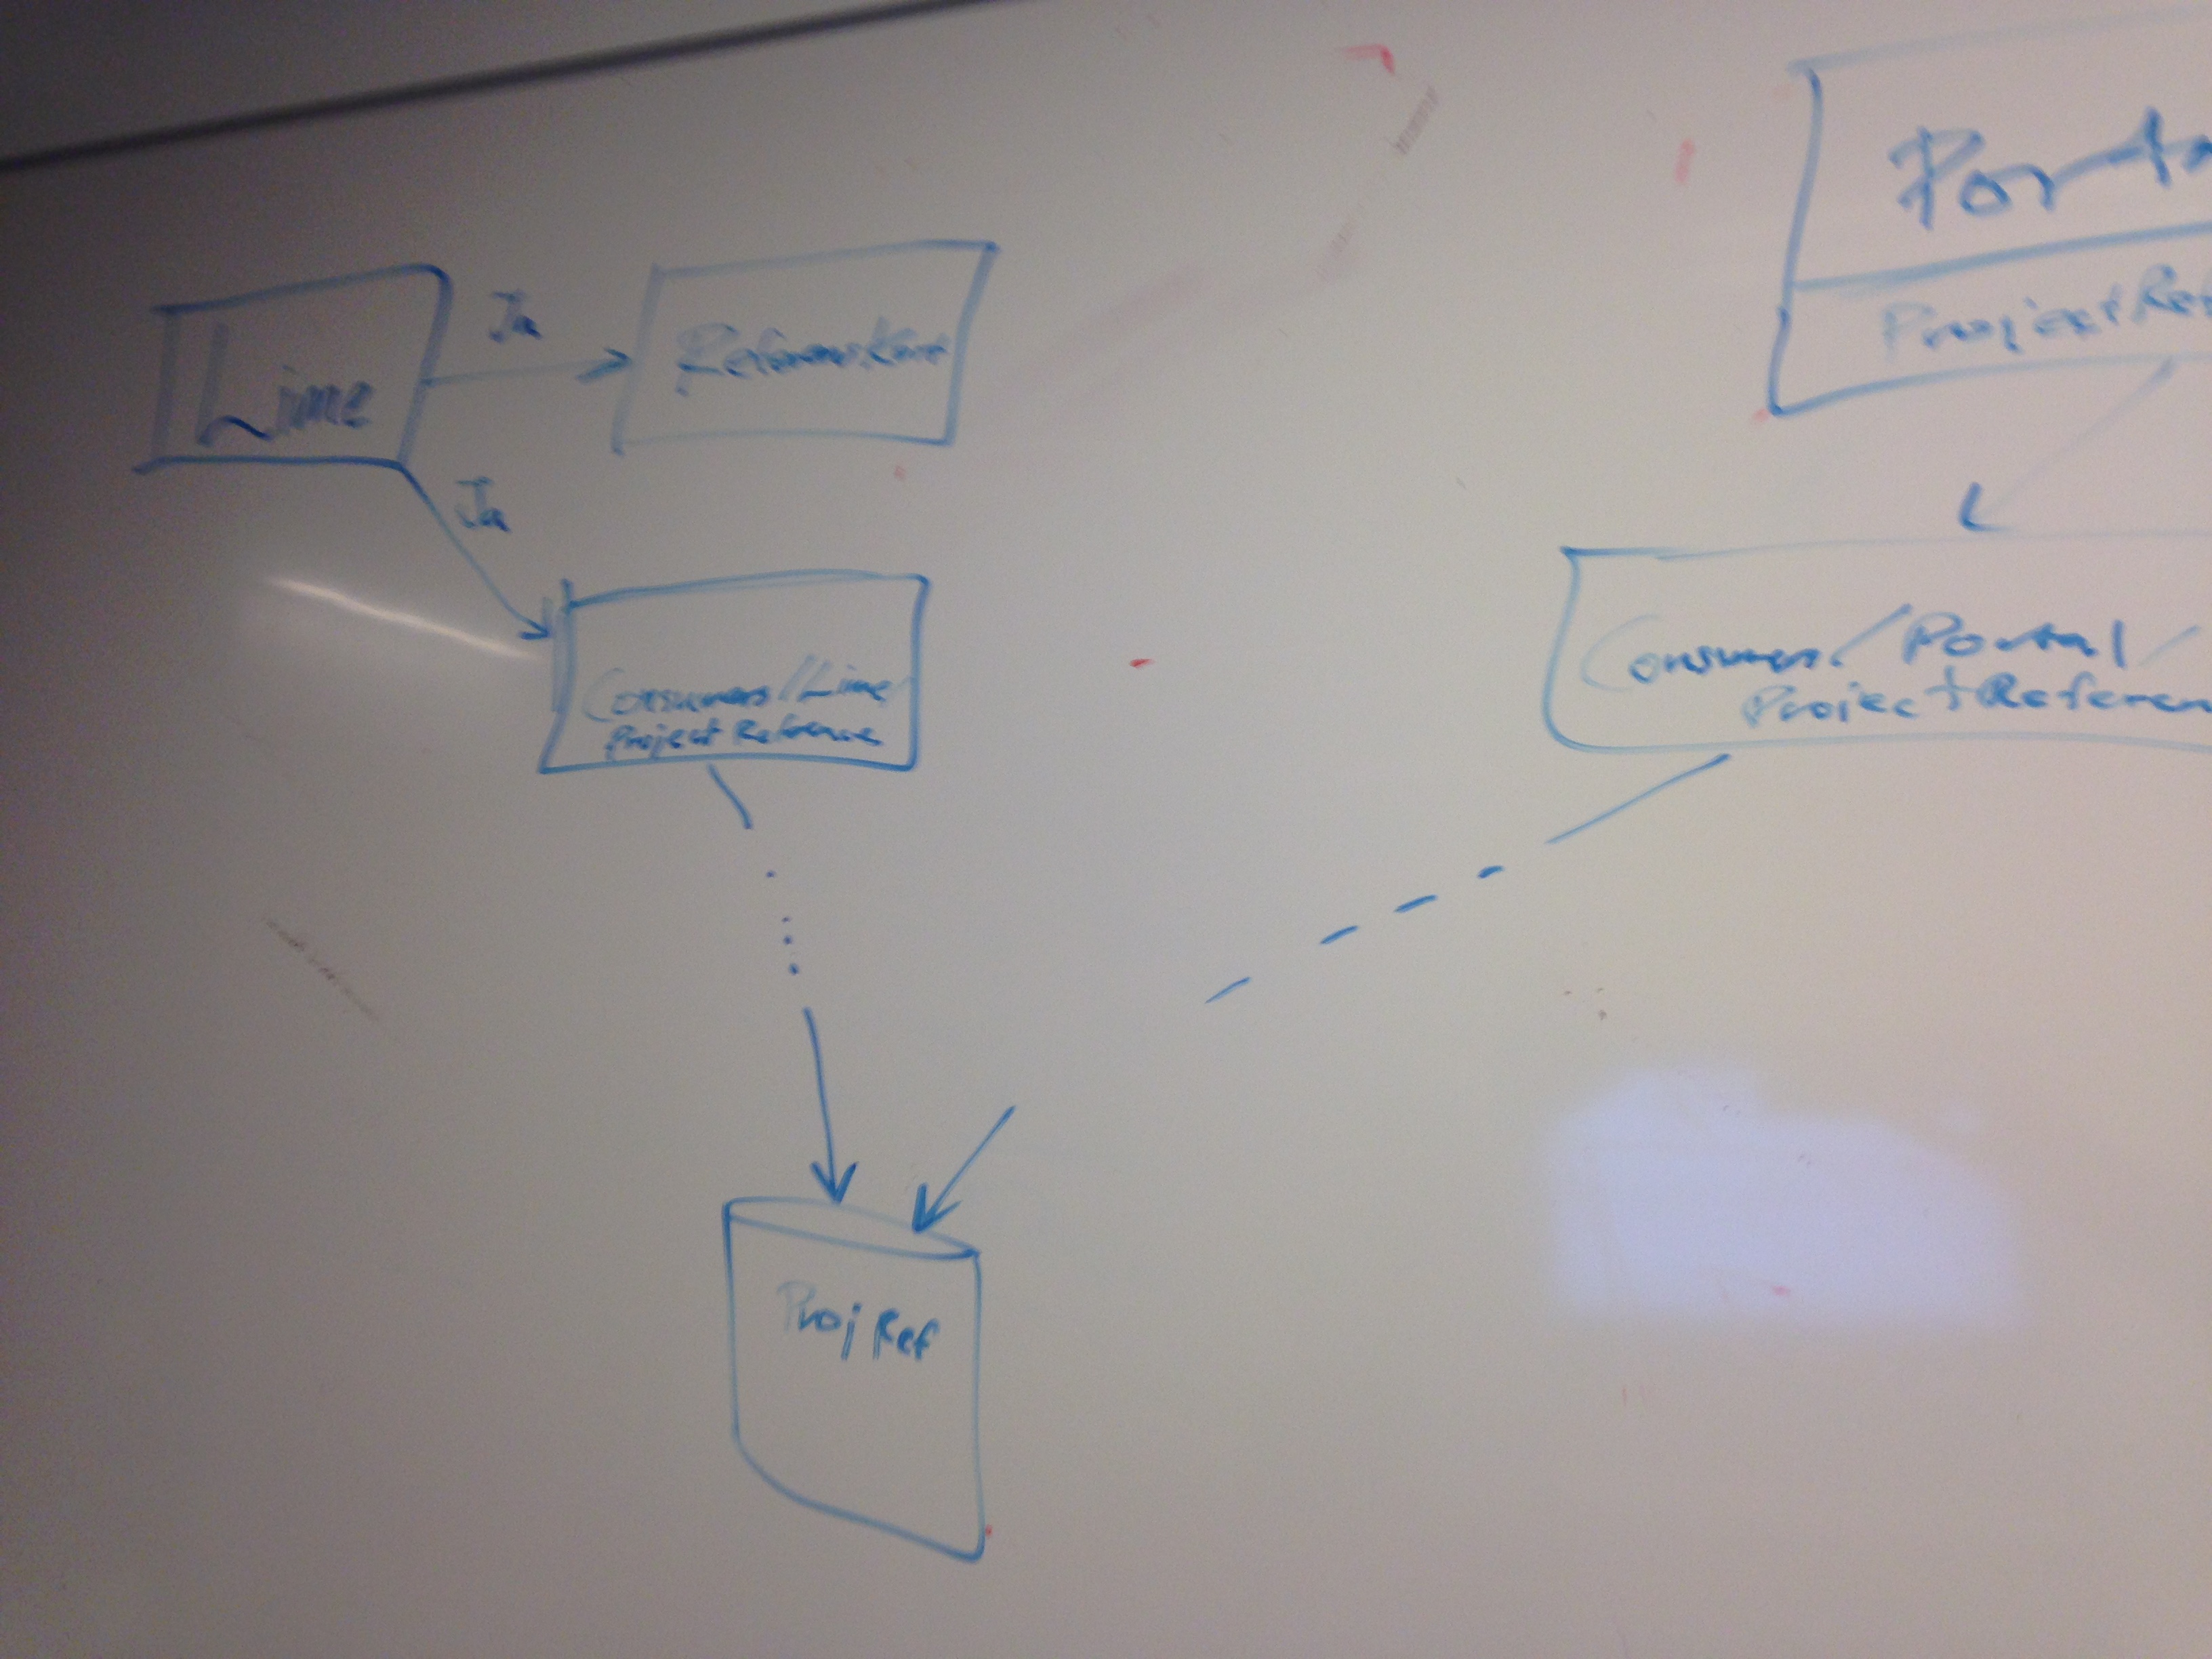 Lime
Ja
Ja
Consumers/Lime/
Project Reference
Proj Ref
Porta
ProjectRef
Consumers/Portal/
ProjectReferen